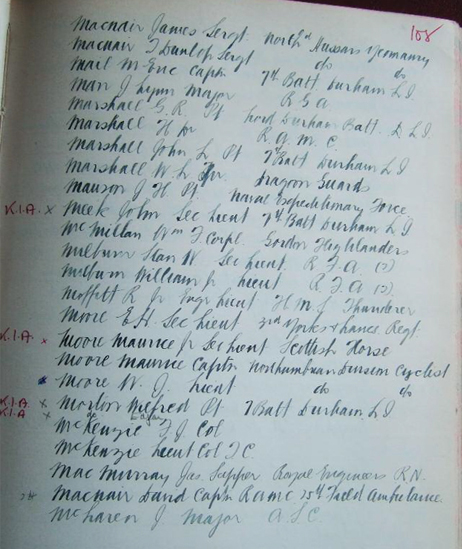 108
Macnair James Sergt. North'd Hussars Yeomanry
Macnair T Dunlop Sergt do do
Mail M. Eric Captn 7th Batt. Durham L I
Marr J Lynn Major R G A
Marshall G. R. Pt Lord Durham Batt. D. L. I.
Marshall H Dr R. A. M. C.
Marshall John L. Pt 7th Batt Durham L I
Marshall W. L. Dragoon Guards
Manson J H Pt Naval Expeditionary Force
K.I.A. x Meek John Sec Lieut 7th Batt Durham L I
McMillan Wm J. Corpl. Gordon Highlanders
Milburn Stan W. Sec Lieut. R. F. A. (2)
Milburn William Jr Lieut R F A (2).
Moffitt R. Jr Engr Lieut H M S Thunderer
More E. H. Sec Lieut 3rd Yorks & Lancs Regt.
K.I.A. x Moore Maurice Jr Sec Lieut Scottish Horse
Moore Maurice Captn Northumbrian Division Cyclist
Moore W. J. Lieut do do
K.I.A. x Morton Wilfred Pt 7 Batt Durham L I
K.I.A. x
McKenzie F. J. Col
McKenzie Lieut Col T C
MacMurray Jas. Sapper Royal Engineers R. N.
Macnair David Captn R A M C 25th Field Ambulance
McLaren J. Major A. S C